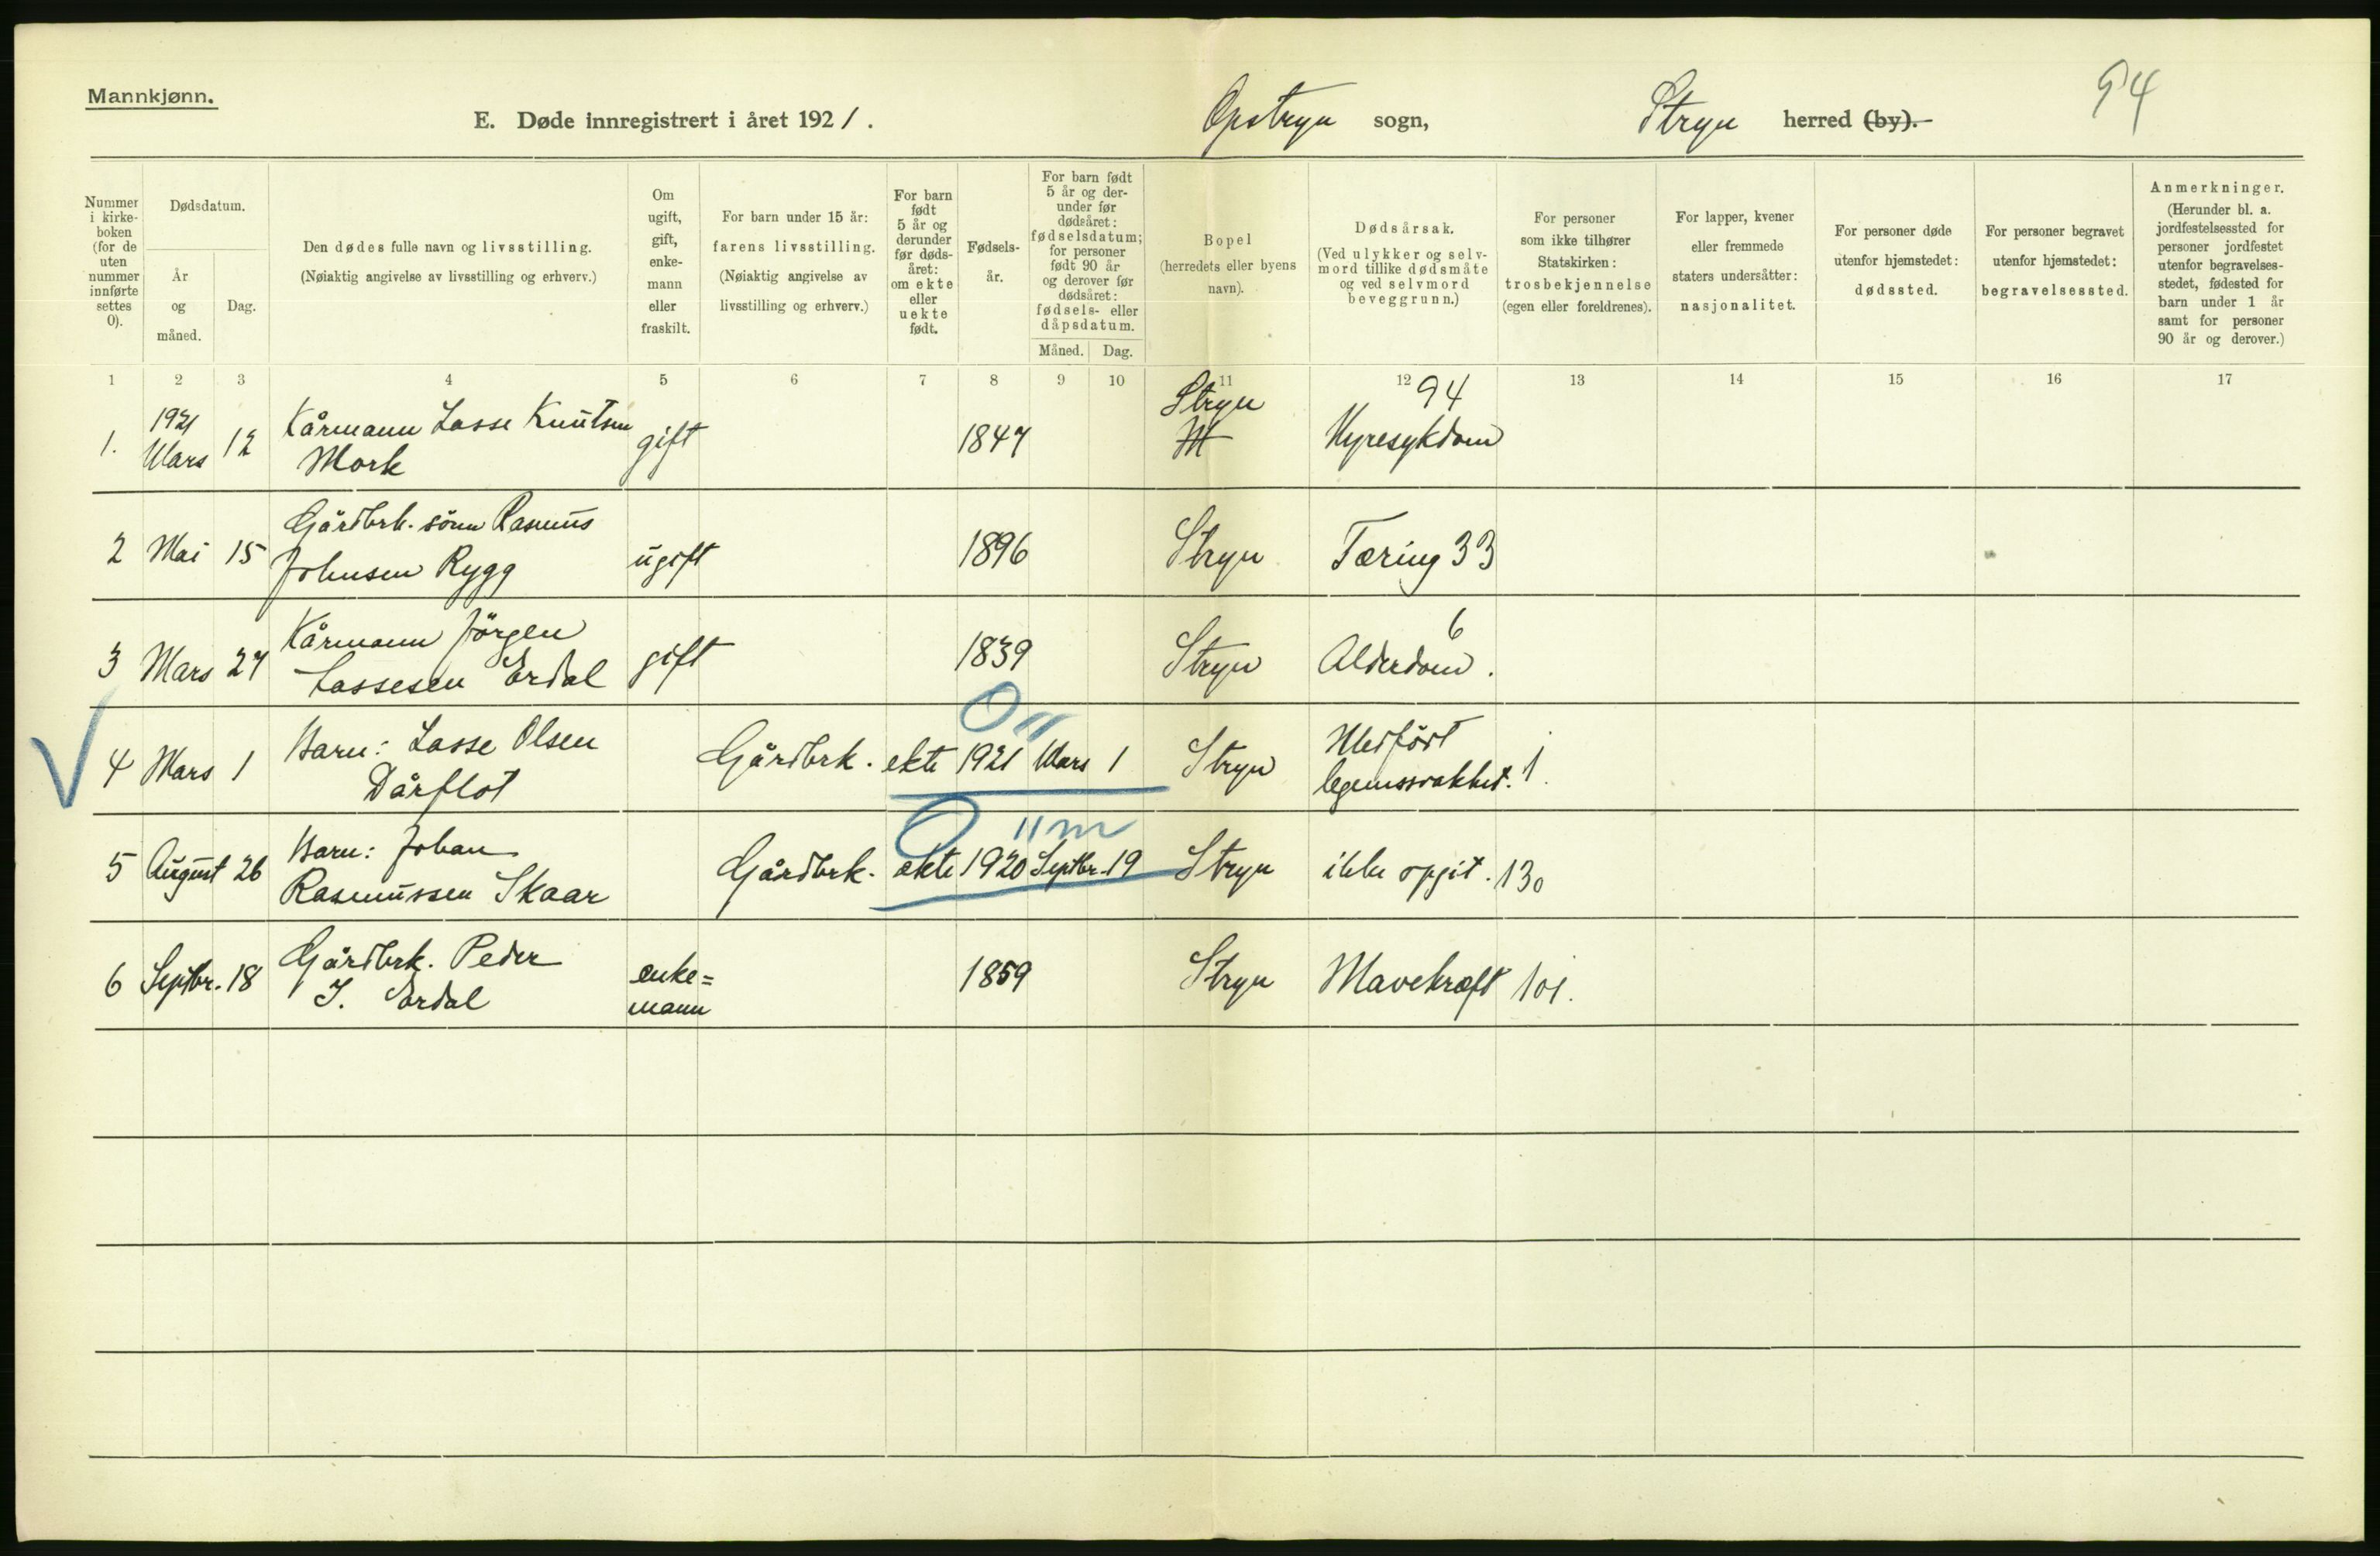 Mannkjønn.
E. Døde innregistrert i året 1921. Opstryn sogn, Stryn herred (by). 94
Nummer i kirke- boken (for de uten nummer innførte settes 0).
Dødsdatum.
År og måned.
Dag.
Den dødes fulle navn og livsstilling.
(Nøiaktig angivelse av livsstilling og erhverv.)
Om ugift, gift, enke- mann eller fraskilt.
For barn under 15 år: farens livsstilling.
(Nøiaktig angivelse av livsstilling og erhverv.)
For barn født 5 år og derunder før døds- året: om ekte eller uekte født.
Fødsels- år.
For barn født 5 år og der- under før dødsåret: fødselsdatum; for personer født 90 år og derover før dødsåret: fødsels- eller dåpsdatum.
Måned. Dag.
Bopel
(herredets eller byens navn).
Dødsårsak.
(Ved ulykker og selv- mord tillike dødsmåte og ved selvmord beveggrunn.)
For personer som ikke tilhører Statskirken: trosbekjennelse
(egen eller foreldrenes).
For lapper, kvener eller fremmede staters undersåtter: nasjonalitet.
For personer døde utenfor hjemstedet: dødssted.
For personer begravet utenfor hjemstedet: begravelsessted.
Anmerkninger.
(Herunder bl. a. jordfestelsessted for personer jordfestet utenfor begravelses- stedet, fødested for barn under 1 år samt for personer 90 år og derover.)
1 2 3 4 5 6 7 8 9 10 11 12 13 14 15 16 17
1. 1921 Mars 12 Kårmann Lasse Knutsen Mork gift 1847 Stryn Nyresykdom 94
2 Mai 15 Gårdbrk. sønn Rasmus Johnsen Rygg ugift 1896 Stryn Tæring 33
3 Mars 27 Kårmann Jörgen Lassesen Erdal gift 1839 Stryn Alderdom. 6
4 Mars 1 Barn: Lasse Olsen Dårflot Gårdbrk. ekte 1921 Mars 1 Stryn Medfödt legemssvakhet. 1.
5 August 26 Barn: Johan Rasmussen Skaar Gårdbrk. ekte 1920 Septbr. 19 Stryn ikke opgit. 130
6 Septbr. 18 Gårdbrk. Peder J. Erdal enke= mann 1859 Stryn Mavekræft 101.